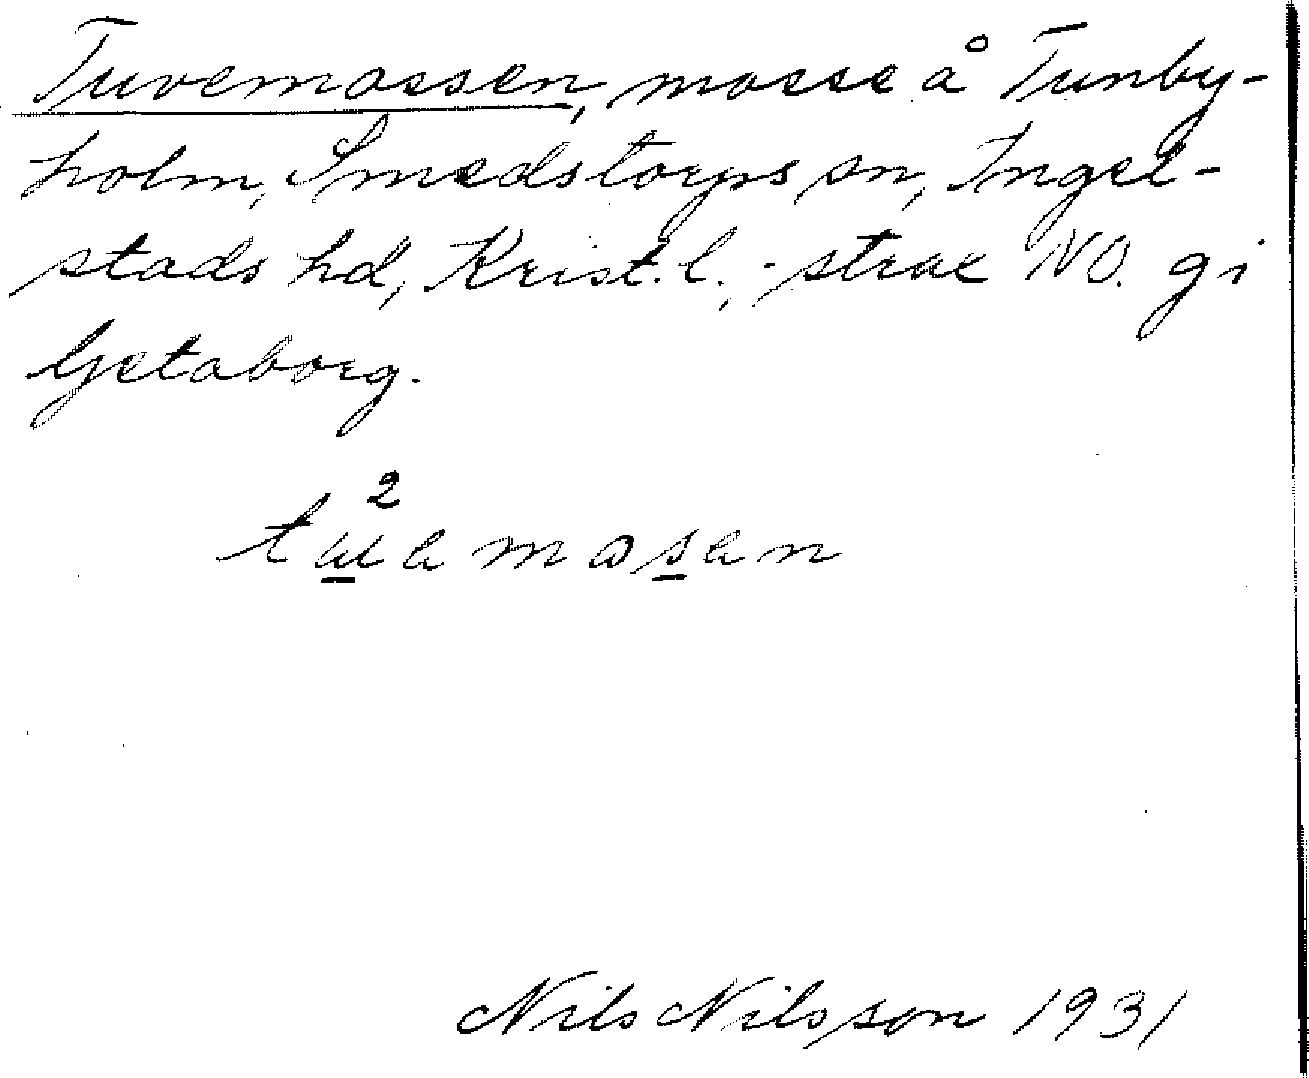 Tuvemossen, mosse å Tunby-
holm, Smedstorps sn, Ingel-
stads hd, Krist. l., - strax NO. gi
Getaborg.
2
tɯɐmosɐn
Nils Nilsson 1931